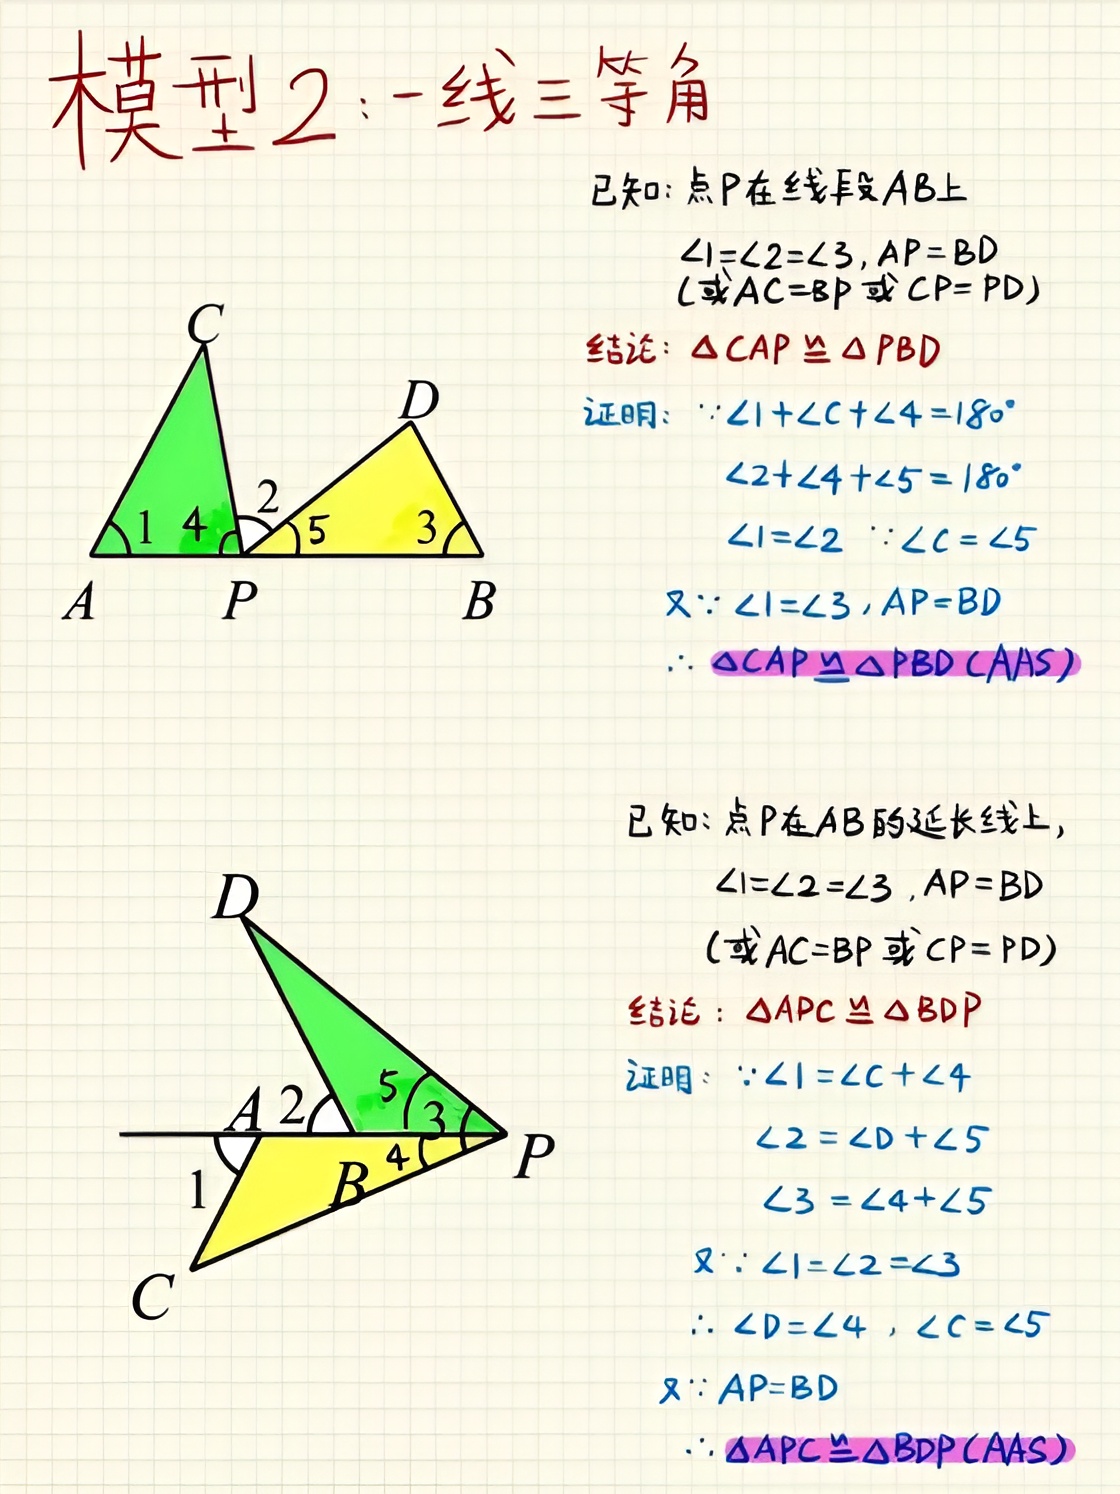 模型2:一线三等角
已知:点P在线段AB上
∠1=∠2=∠3,AP=BD
(或AC=BP或CP=PD)
结论:△CAP≌△PBD
证明:∵∠1+∠C+∠4=180°
∠2+∠4+∠5=180°
∠1=∠2 ∵∠C=∠5
又∵∠1=∠3,AP=BD
∴△CAP≌△PBD(AAS)
C
D
2
1 4 5 3
A P B
已知:点P在AB的延长线上,
∠1=∠2=∠3,AP=BD
(或AC=BP或CP=PD)
结论:△APC≌△BDP
证明:∵∠1=∠C+∠4
∠2=∠D+∠5
∠3=∠4+∠5
又∵∠1=∠2=∠3
∴∠D=∠4,∠C=∠5
又∵AP=BD
∴△APC≌△BDP(AAS)
D
A 2 5 3
1 B 4 P
C